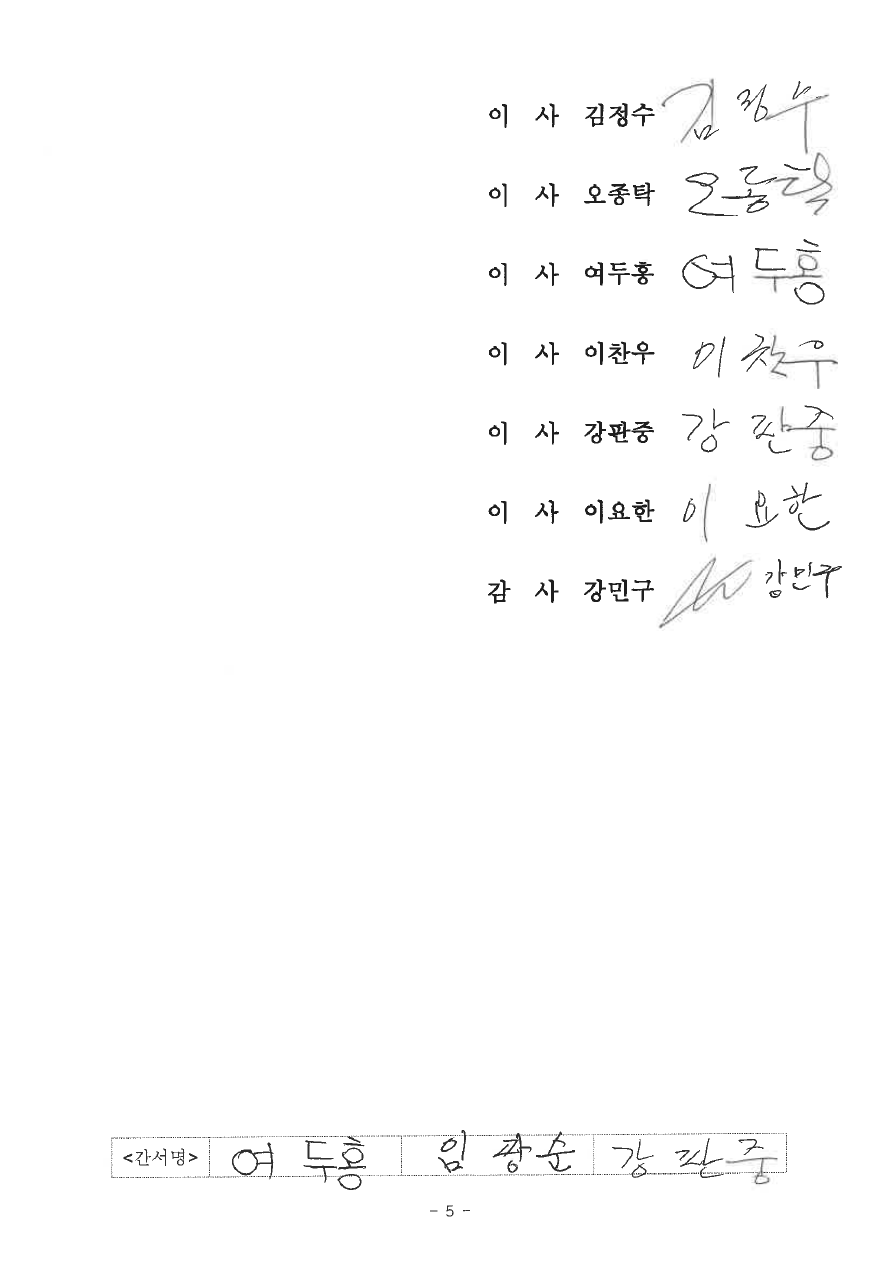 이 사 김정수 김정수
이 사 오종탁 오종탁
이 사 여두홍 여두홍
이 사 이찬우 이찬우
이 사 강판중 강판중
이 사 이요한 이요한
감 사 강민구 강민구
<간서명> 여두홍 임광순 강판중
- 5 -